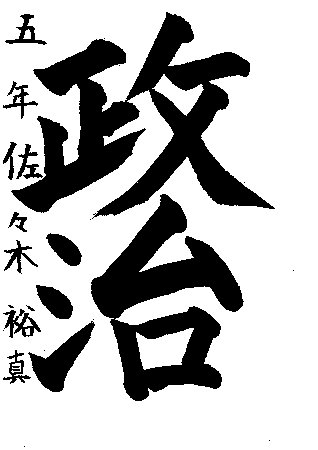 政治
五年佐々木裕真